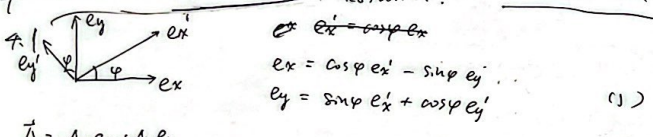 4.1
ey
ex'
ey'
φ
φ
ex
ex ex' = cosφ ex
ex = cosφ ex' - sinφ ey'
ey = sinφ ex' + cosφ ey'
(1)